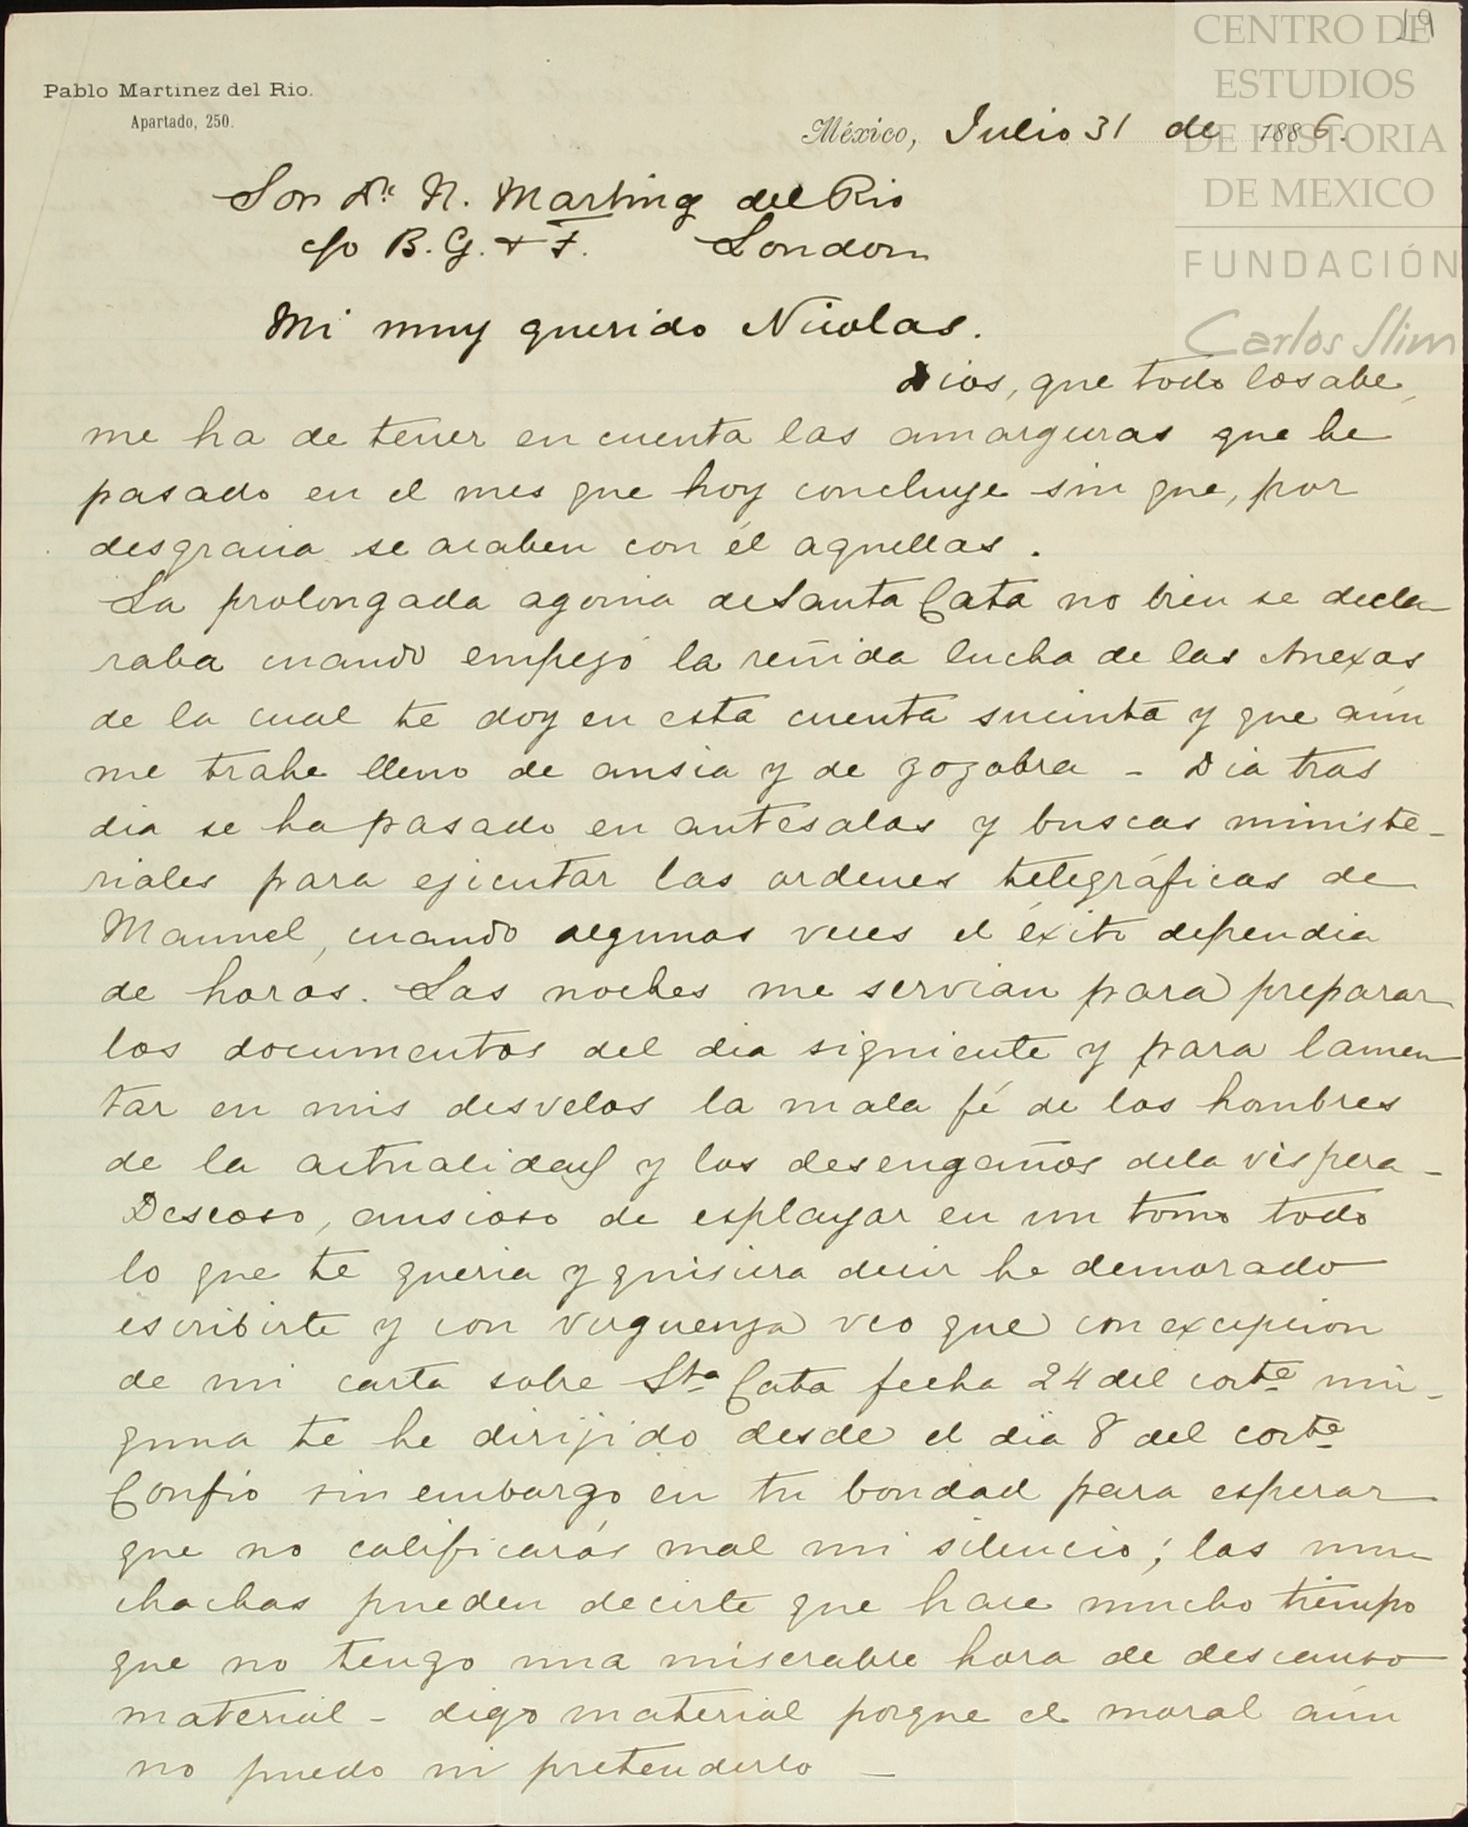 19
CENTRO DE
ESTUDIOS
DE HISTORIA
DE MEXICO
FUNDACIÓN
Carlos Slim
Pablo Martinez del Rio.
Apartado, 250.
México, Julio 31 de 1886.
Sor Dn N. Martinez del Rio
c/o B. G. & F. London
Mi muy querido Nicolas.
Dios, que todo lo sabe,
me ha de tener en cuenta las amarguras que he
pasado en el mes que hoy concluye sin que, por
desgracia se acaben con él aquellas.
La prolongada agonia de Santa Cata no bien se decla-
raba cuando empezó la reñida lucha de las Anexas
de la cual te doy en esta cuenta sucinta y que aún
me trahe lleno de ansia y de zozobra - Dia tras
dia se ha pasado en antesalas y buscas ministe-
riales para ejecutar las ordenes telegráficas de
Manuel, cuando algunas veces el éxito dependia
de horas. Las noches me servian para preparar
los documentos del dia siguiente y para lamen-
tar en mis desvelos la mala fé de los hombres
de la actualidad y los desengaños dela vispera -
Deseoso, ansioso de esplayar en un tomo todo
lo que te queria y quisiera decir he demorado
escribirte y con verguenza veo que con excepcion
de mi carta sobre Sta Cata fecha 24 del corte nin-
guna te he dirijido desde el dia 8 del corte
Confio sin embargo en tu bondad para esperar
que no calificarás mal mi silencio; las mu-
chachas pueden decirte que hace mucho tiempo
que no tengo una miserable hora de descanso
material - digo material porque el moral aún
no puedo ni pretenderlo -